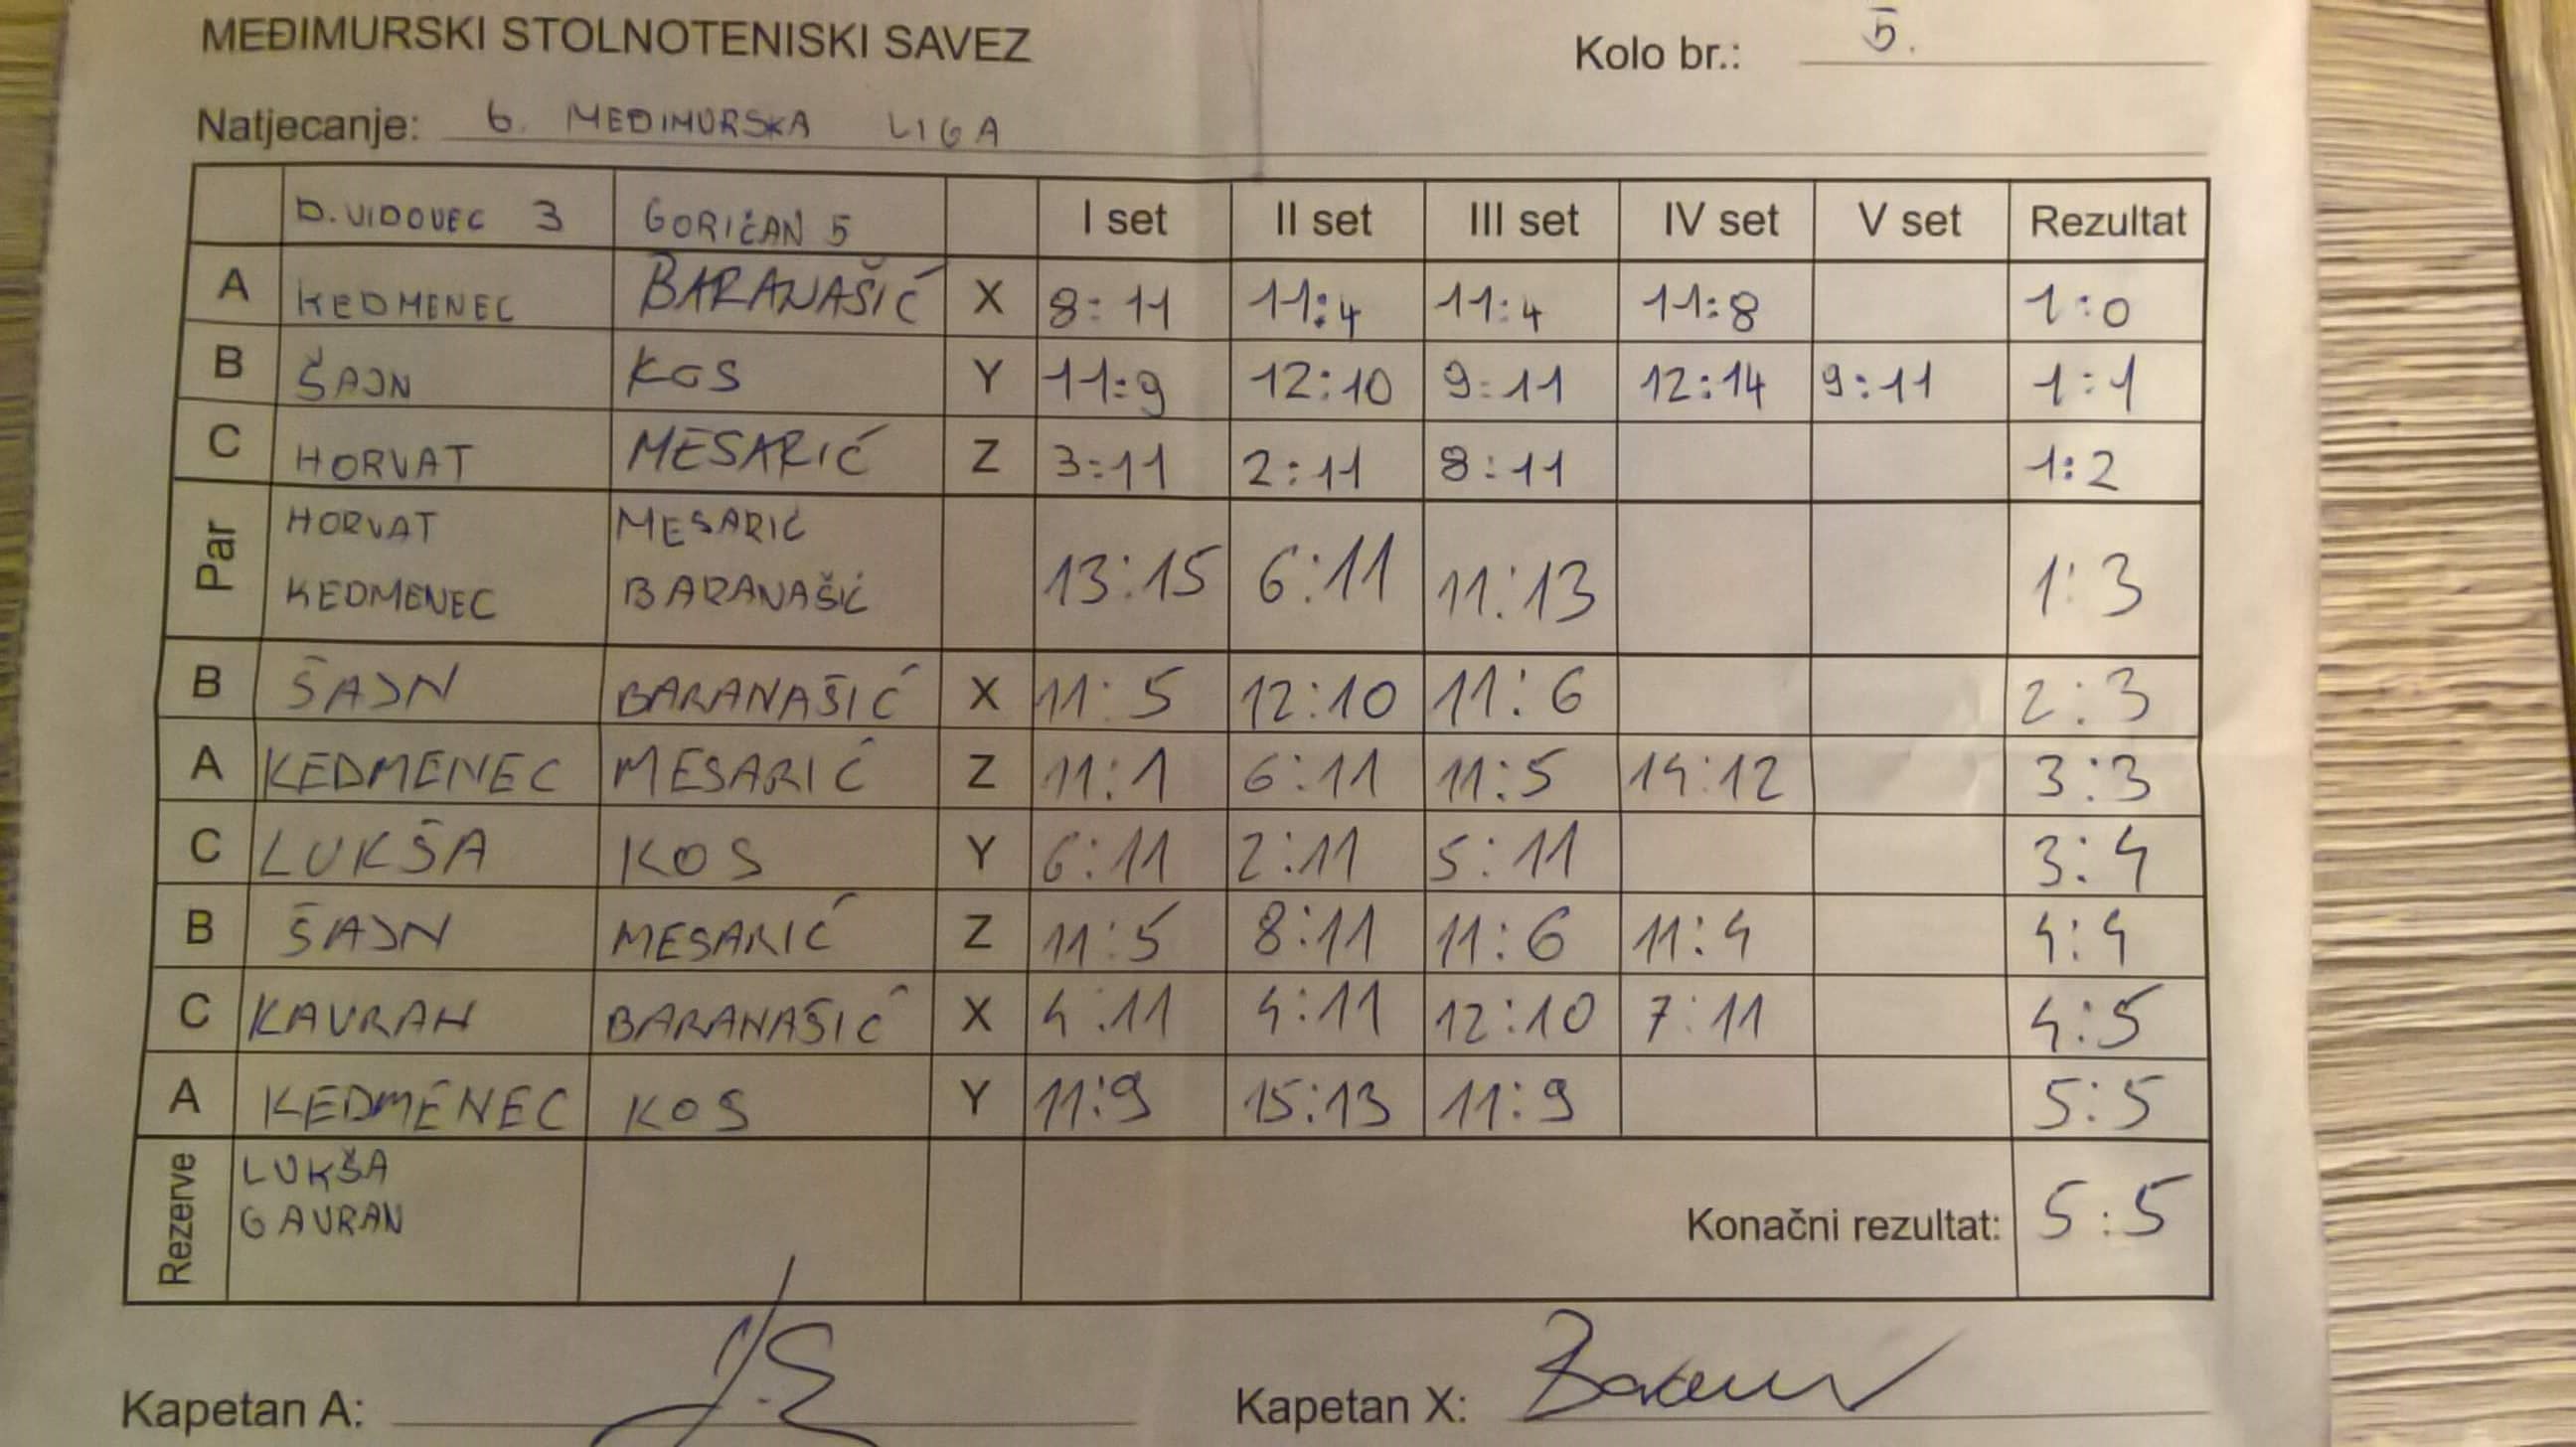 MEĐIMURSKI STOLNOTENISKI SAVEZ Kolo br.: 5.
Natjecanje: 6. MEĐIMURSKA LIGA
D. VIDOVEC 3 GORIČAN 5 I set II set III set IV set V set Rezultat
A KEDMENEC BARANAŠIĆ X 8:11 11:4 11:4 11:8 1:0
B ŠAJN KOS Y 11:9 12:10 9:11 12:14 9:11 1:1
C HORVAT MESARIĆ Z 3:11 2:11 8:11 1:2
Par HORVAT MESARIĆ
KEDMENEC BARANAŠIĆ 13:15 6:11 11:13 1:3
B ŠAJN BARANAŠIĆ X 11:5 12:10 11:6 2:3
A KEDMENEC MESARIĆ Z 11:1 6:11 11:5 14:12 3:3
C LUKŠA KOS Y 6:11 2:11 5:11 3:4
B ŠAJN MESARIĆ Z 11:5 8:11 11:6 11:4 4:4
C KAVRAN BARANAŠIĆ X 4:11 4:11 12:10 7:11 4:5
A KEDMENEC KOS Y 11:9 15:13 11:9 5:5
Rezerve LUKŠA
GAVRAN
Konačni rezultat: 5:5
Kapetan A: Kapetan X: